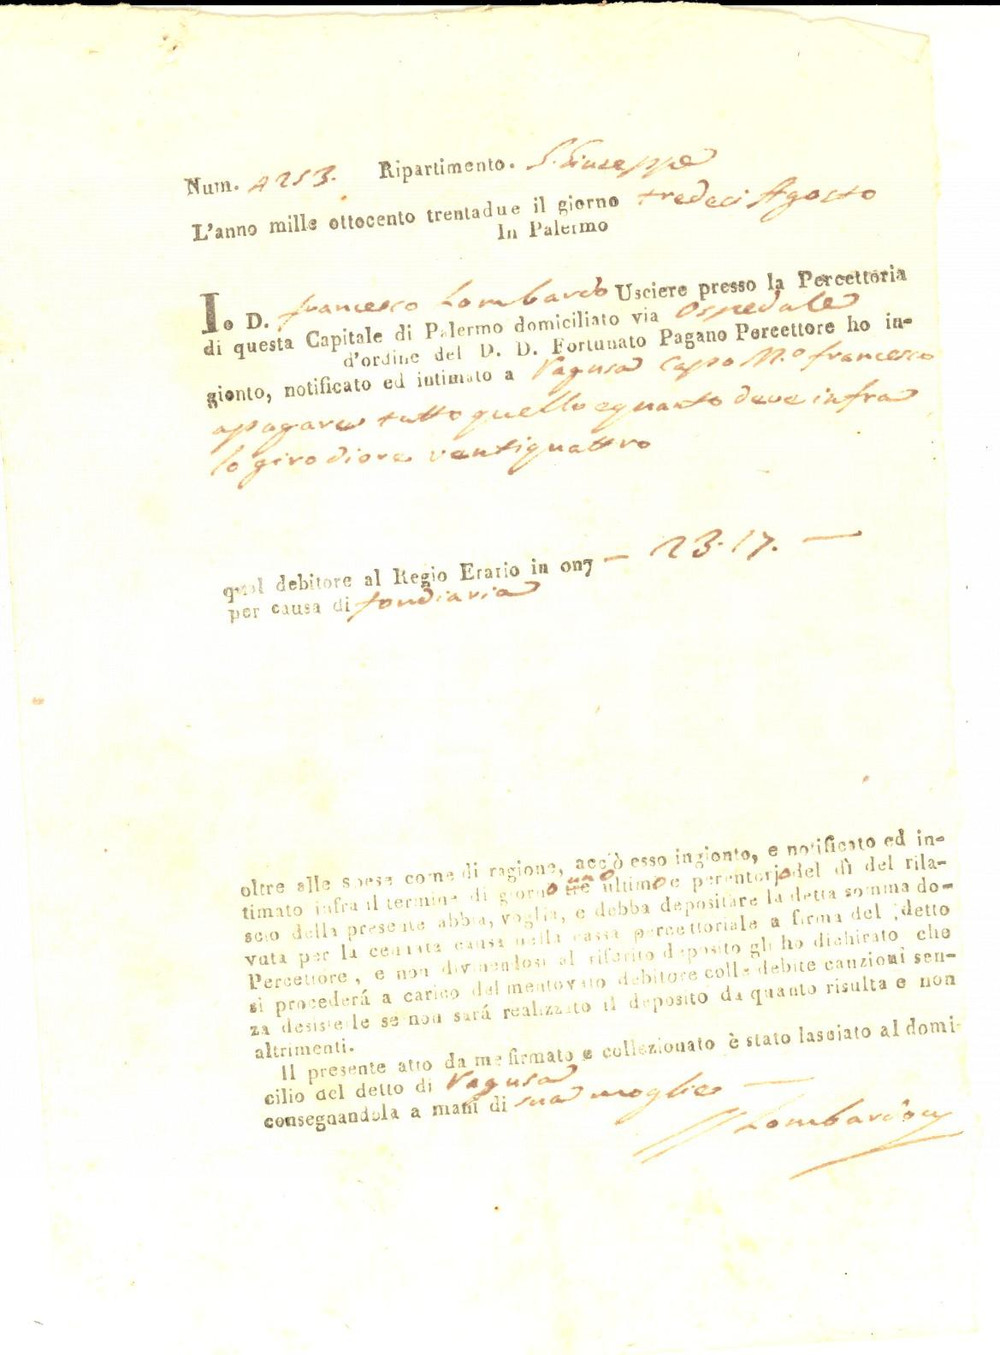 Num. 4253. Ripartimento. S. Giuseppe
L'anno mille ottocento trentadue il giorno tredeci Agosto
In Palermo
Io D. Francesco Lombardo Usciere presso la Percettoria
di questa Capitale di Palermo domiciliato via Ospedale
d'ordine del D. D. Fortunato Pagano Percettore ho in-
gionto, notificato ed intimato a Ragusa Capo M.o Francesco
a pagare tutto quello e quanto deve infra
lo giro di ore ventiquattro
qual debitore al Regio Erario in onz — 23.17. —
per causa di fondiaria
oltre alle spese come di ragione, acciò esso ingionto, e notificato ed in-
timato infra il termine di giorno uno tre ultimo e perentorjo del dì del rila-
scio della presente abbia, voglia, e debba depositare la detta somma do-
vuta per la cennata causa nella cassa percettoriale a firma del detto
Percettore, e non divenendosi al riferito deposito gli ho dichirato che
si procederá a carico del mentovato debitore colle debite canzioni sen-
za desisterle se non sará realizzato il deposito da quanto risulta e non
altrimenti.
Il presente atto da me firmato e collezionato è stato lasciato al domi-
cilio del detto di Ragusa
consegnandola a mani di sua moglie —
Lombardo